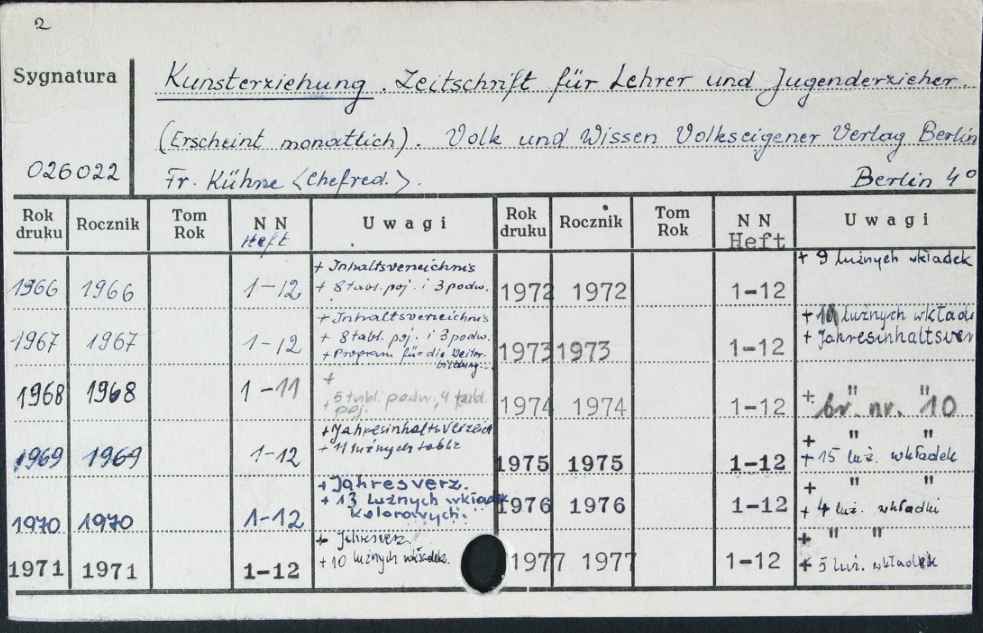 2
Sygnatura
Kunsterziehung. Zeitschrift für Lehrer und Jugenderzieher.
(Erscheint monatlich). Volk und Wissen Volkseigener Verlag Berlin
026022
Fr. Kühne <Chefred.>.
Berlin 4°
Rok druku Rocznik Tom Rok NN Heft Uwagi Rok druku Rocznik Tom Rok NN Heft Uwagi
1966 1966 1-12 + Inhaltsverzeichnis
+ 8 tabl. poj. i 3 podw.
1967 1967 1-12 + Inhaltsverzeichnis
+ 8 tabl. poj. i 3 podw.
+ Program für die Weiterbildung
1968 1968 1-11 +
5 tabl. podw., 4 tabl.
poj.
1969 1969 1-12 + Jahresinhaltsverzeich
+ 11 luźnych tablic
1970 1970 1-12 + Jahresverz.
+ 13 luźnych wkładek
kolorowych.
1971 1971 1-12 +
+ 10 luźnych wkładek.
1972 1972 1-12 + 9 luźnych wkładek
1973 1973 1-12 + luźnych wkładek
+ Jahresinhaltsver
1974 1974 1-12 + " "
br. nr. 10
1975 1975 1-12 + " "
+ 15 luź. wkładek
1976 1976 1-12 + " "
+ 4 luź. wkładki
1977 1977 1-12 + " "
+ 5 luź. wkładek